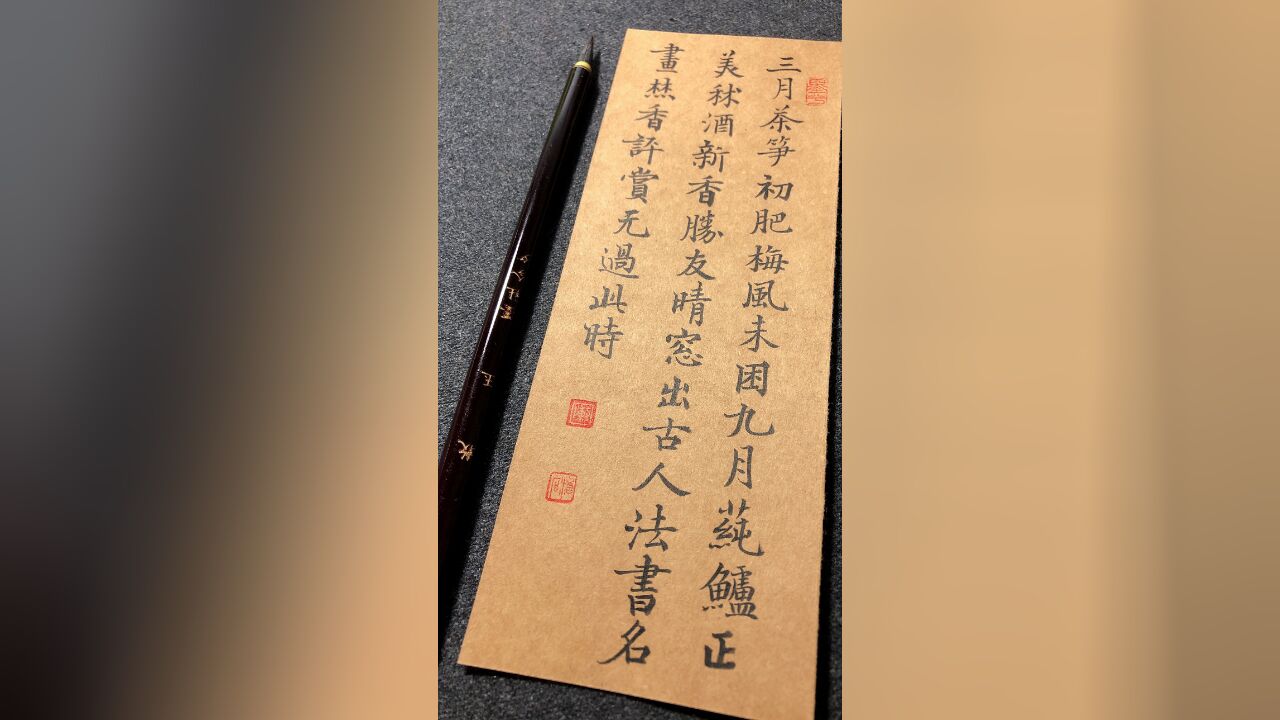 三月茶笋初肥梅風未困九月蒓鱸正
美秫酒新香勝友晴窓出古人法書名
畫焚香評賞无過此時